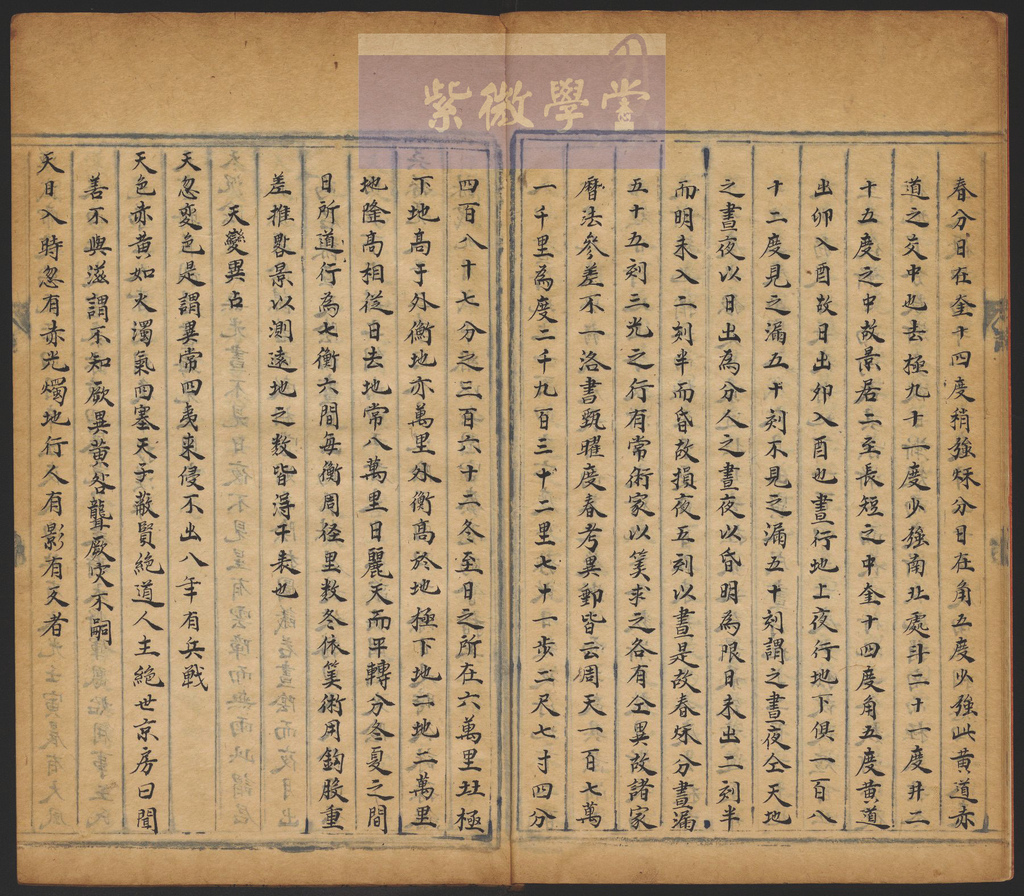 紫微學堂
春分日在奎十四度稍強秌分日在角五度少強此黃道赤
道之交中也去極九十一度少強南北處斗二十六度井二
十五度之中故景居二至長短之中奎十四度角五度黃道
出卯入酉故日出卯入酉也晝行地上夜行地下俱一百八
十二度見之漏五十刻不見之漏五十刻謂之晝夜仝天地
之晝夜以日出為分人之晝夜以昏明為限日未出二刻半
而明未入二刻半而昏故損夜五刻以晝是故春秌分晝漏
五十五刻三光之行有常術家以筭求之各有仝異故諸家
曆法參差不一洛書甄曜度春考異郵皆云周天一百七萬
一千里為度二千九百三十二里七十一步二尺七寸四分
四百八十七分之三百六十二冬至日之所在六萬里北極
下地高于外衡地亦萬里外衡高於地極下地二地二萬里
地隆高相從日去地常八萬里日麗天而平轉分冬夏之間
日所道行為七衡六間每衡周徑里数冬依筭術用鈎股重
差推晷景以測遠地之数皆淂干表也
天變異占
天忽変色是謂異常四夷来侵不出八年有兵戰
天色赤黄如火濁氣四塞天子蔽賢絶道人主絶世京房曰聞
善不與滋謂不知厥異黄咎聾厥灾不嗣
天日入時忽有赤光燭地行人有影有文者